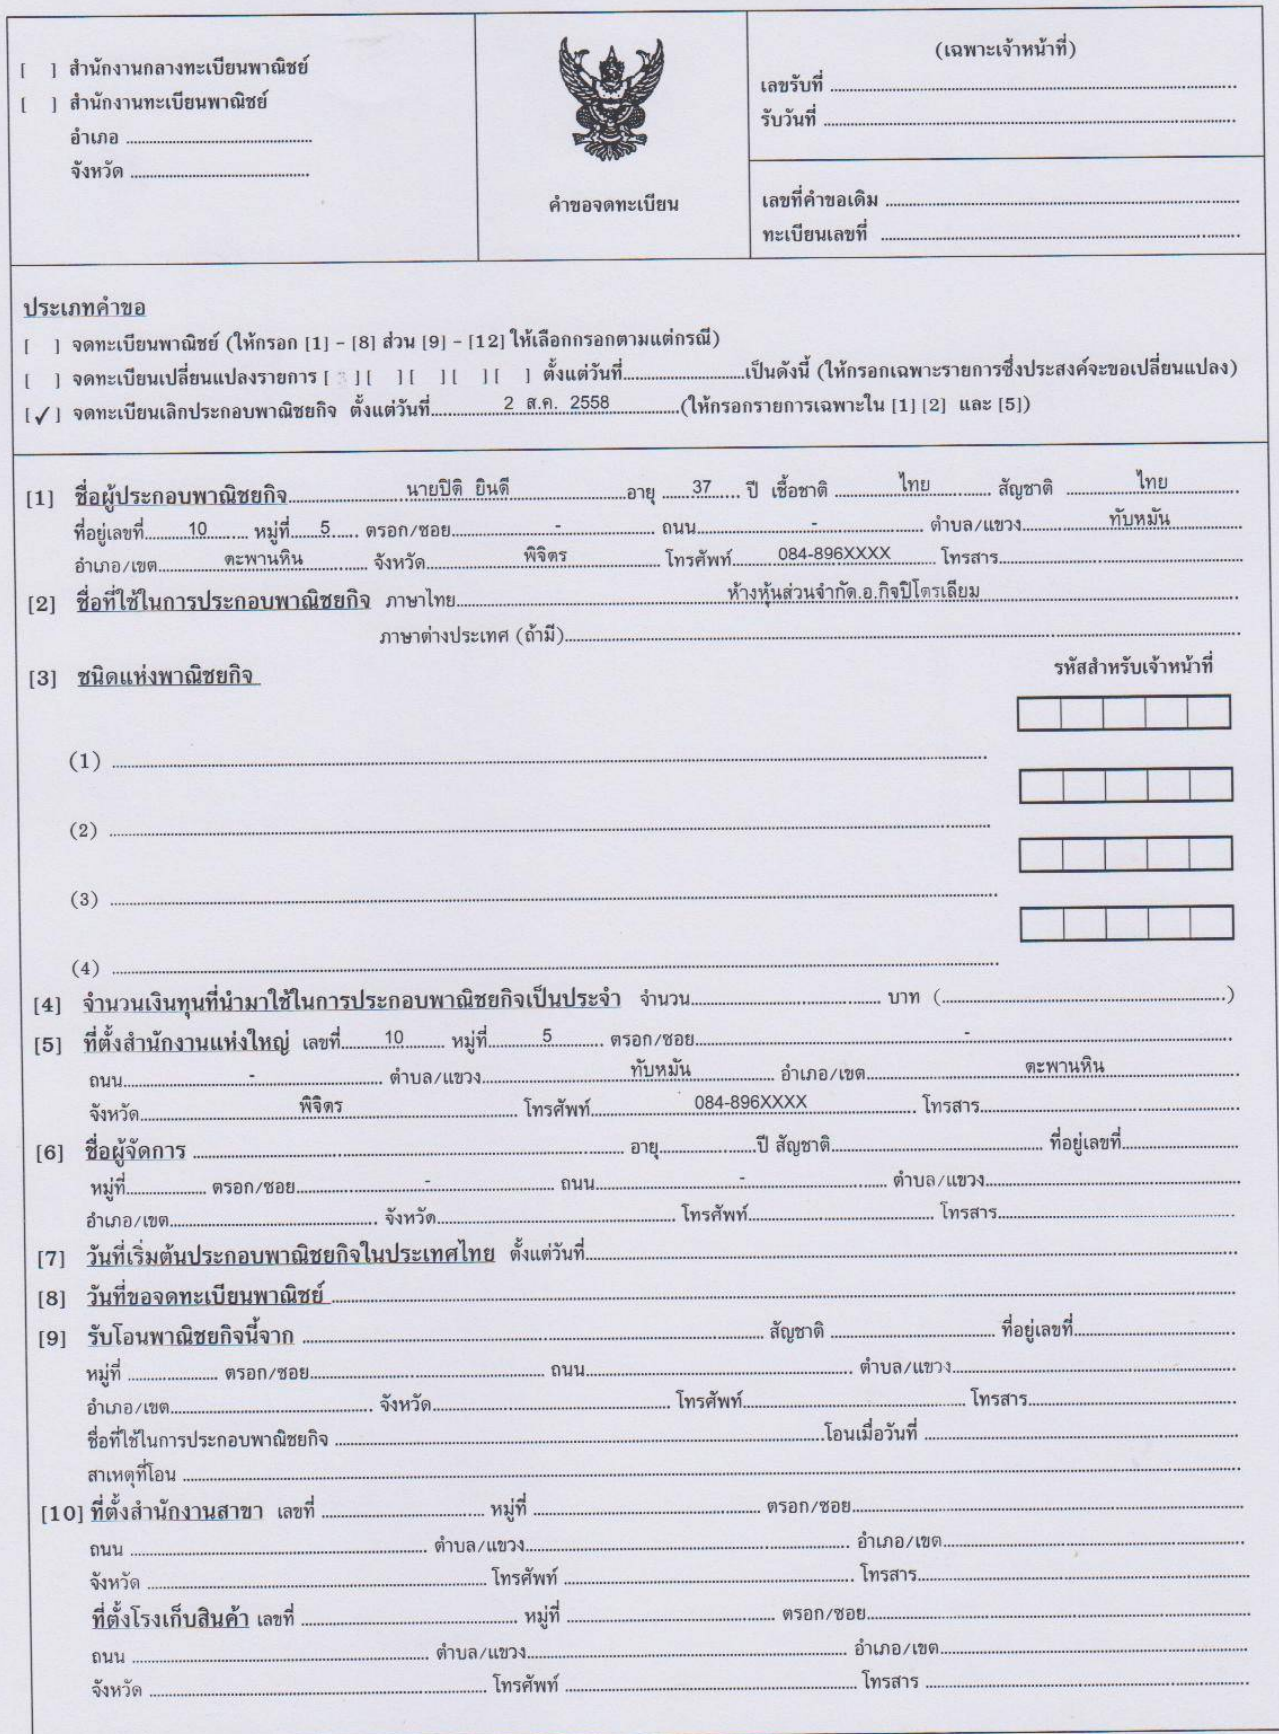 (เฉพาะเจ้าหน้าที่)
[ ] สำนักงานกลางทะเบียนพาณิชย์
เลขรับที่ ........................................
[ ] สำนักงานทะเบียนพาณิชย์
รับวันที่ ........................................
อำเภอ ........................................
จังหวัด ........................................
คำขอจดทะเบียน
เลขที่คำขอเดิม ........................................
ทะเบียนเลขที่ ........................................
ประเภทคำขอ
[ ] จดทะเบียนพาณิชย์ (ให้กรอก [1] - [8] ส่วน [9] - [12] ให้เลือกกรอกตามแต่กรณี)
[ ] จดทะเบียนเปลี่ยนแปลงรายการ [ 3 ] [ ] [ ] [ ] [ ] ตั้งแต่วันที่....................เป็นดังนี้ (ให้กรอกเฉพาะรายการซึ่งประสงค์จะขอเปลี่ยนแปลง)
[✓] จดทะเบียนเลิกประกอบพาณิชยกิจ ตั้งแต่วันที่..........2 ส.ค. 2558..........(ให้กรอกรายการเฉพาะใน [1] [2] และ [5])
[1] ชื่อผู้ประกอบพาณิชยกิจ..........นายปิติ ยินดี..........อายุ .....37..... ปี เชื้อชาติ .....ไทย..... สัญชาติ .....ไทย.....
ที่อยู่เลขที่.....10..... หมู่ที่.....5..... ตรอก/ซอย..........-.......... ถนน..........-.......... ตำบล/แขวง..........ทับหมัน..........
อำเภอ/เขต..........ตะพานหิน.......... จังหวัด..........พิจิตร.......... โทรศัพท์.....084-896XXXX..... โทรสาร....................
[2] ชื่อที่ใช้ในการประกอบพาณิชยกิจ ภาษาไทย..........ห้างหุ้นส่วนจำกัด.อ.กิจปิโตรเลียม..........
ภาษาต่างประเทศ (ถ้ามี)........................................
[3] ชนิดแห่งพาณิชยกิจ
รหัสสำหรับเจ้าหน้าที่
(1) ........................................
(2) ........................................
(3) ........................................
(4) ........................................
[4] จำนวนเงินทุนที่นำมาใช้ในการประกอบพาณิชยกิจเป็นประจำ จำนวน.................... บาท (........................................)
[5] ที่ตั้งสำนักงานแห่งใหญ่ เลขที่.....10..... หมู่ที่.....5..... ตรอก/ซอย..........-..........
ถนน..........-.......... ตำบล/แขวง..........ทับหมัน.......... อำเภอ/เขต..........ตะพานหิน..........
จังหวัด..........พิจิตร.......... โทรศัพท์..........084-896XXXX.......... โทรสาร....................
[6] ชื่อผู้จัดการ .................... อายุ....................ปี สัญชาติ.................... ที่อยู่เลขที่....................
หมู่ที่.......... ตรอก/ซอย..........-.......... ถนน..........-.......... ตำบล/แขวง....................
อำเภอ/เขต.................... จังหวัด.................... โทรศัพท์.................... โทรสาร....................
[7] วันที่เริ่มต้นประกอบพาณิชยกิจในประเทศไทย ตั้งแต่วันที่........................................
[8] วันที่ขอจดทะเบียนพาณิชย์ ........................................
[9] รับโอนพาณิชยกิจนี้จาก .................... สัญชาติ .................... ที่อยู่เลขที่....................
หมู่ที่ .................... ตรอก/ซอย.................... ถนน.................... ตำบล/แขวง....................
อำเภอ/เขต.................... จังหวัด.................... โทรศัพท์.................... โทรสาร....................
ชื่อที่ใช้ในการประกอบพาณิชยกิจ ....................โอนเมื่อวันที่ ....................
สาเหตุที่โอน ........................................
[10] ที่ตั้งสำนักงานสาขา เลขที่ .................... หมู่ที่ .................... ตรอก/ซอย....................
ถนน .................... ตำบล/แขวง.................... อำเภอ/เขต....................
จังหวัด .................... โทรศัพท์ .................... โทรสาร....................
ที่ตั้งโรงเก็บสินค้า เลขที่ .................... หมู่ที่ .................... ตรอก/ซอย....................
ถนน .................... ตำบล/แขวง.................... อำเภอ/เขต....................
จังหวัด .................... โทรศัพท์ .................... โทรสาร ....................